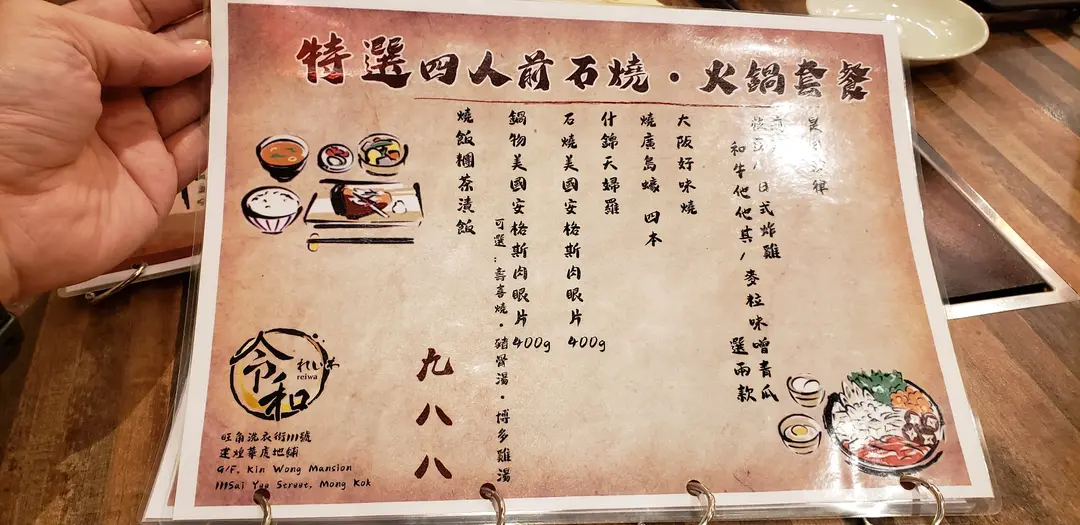 特選四人前石燒・火鍋套餐
律
日式炸雞
和牛他他其/麥粒味噌青瓜
選兩款
大阪好味燒
燒廣島蠔 四本
什錦天婦羅
石燒美國安格斯肉眼片400g
鍋物美國安格斯肉眼片400g
可選:壽喜燒・豬骨湯・博多雞湯
燒飯糰茶漬飯
九八八
令和
れいわ
reiwa
旺角洗衣街111號
建煌華廈地鋪
G/F, Kin Wong Mansion
111Sai Yee Street, Mong Kok